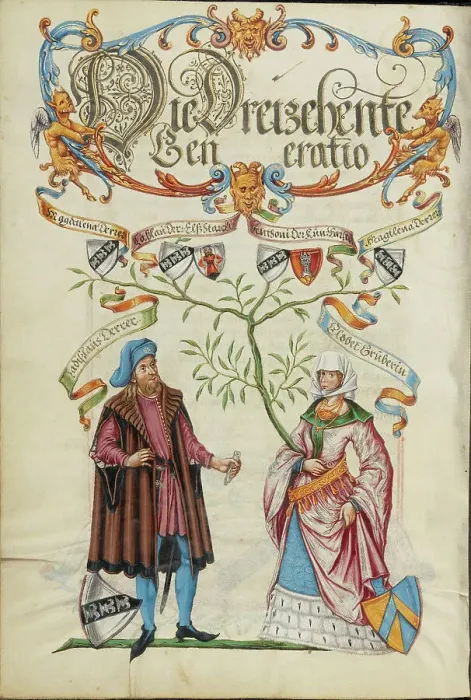 Die Dreizehente
Gen eratio
Magdalena Derrer
Laßlan Der: Elß Starck
Anthoni Der: Kun:
Magdlena Derrer
Ladislaus Derrer
Elsbet Gruberin